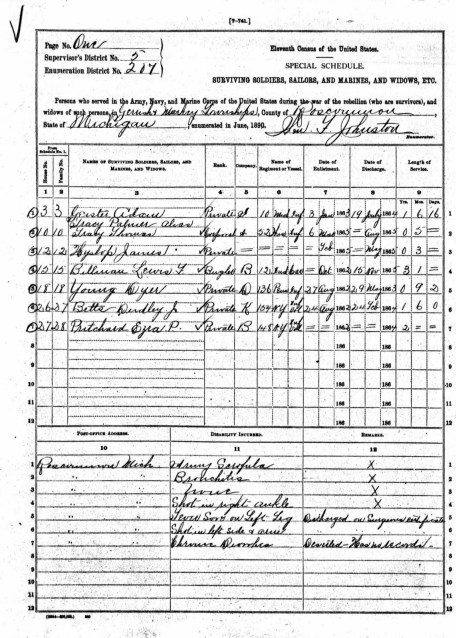 [7-741.]
Page No. One
Supervisor's District No. 5
Enumeration District No. 207
Eleventh Census of the United States.
SPECIAL SCHEDULE.
SURVIVING SOLDIERS, SAILORS, AND MARINES, AND WIDOWS, ETC.
Persons who served in the Army, Navy, and Marine Corps of the United States during the war of the rebellion (who are survivors), and
widows of such persons, in Gerrish & Markey Townships, County of Roscommon
State of Michigan, enumerated in June, 1890. T Johnston
Enumerator.
From Schedule No. 1.
House No. Family No. NAMES OF SURVIVING SOLDIERS, SAILORS, AND MARINES, AND WIDOWS. Rank. Company. Name of Regiment or Vessel. Date of Enlistment. Date of Discharge. Length of Service.
Yrs. Mos. Days.
1 2 3 4 5 6 7 8 9
3 3 Adam Private 10 Inf 3 Jan 1863 19 July 1864 1 6 16 1
Tracy Palmer alias
10 10 Tracy Thomas 52 Inf 6 Mar 186 = Aug 186 0 5 = 2
12 12 Hyslop James Private = = = = Feb 1865 = May 1865 0 3 = 3
15 15 Billman Lewis F. Bugler B 12 = Oct 1862 15 Nov 1865 3 1 = 4
18 18 Young Dyer Private D 136 Penn Inf 27 Aug 1862 29 May 1863 0 9 2 5
26 27 Betts Dudley J Private K 154 N.Y. 24 Aug 1862 24 Feb 1864 1 6 0 6
27 28 Pritchard Ezra P. Private B 148 N.Y. = = 1862 = = 1864 2 = = 7
186 186 8
186 186 9
186 186 10
186 186 11
186 186 12
POST-OFFICE ADDRESS. DISABILITY INCURRED. REMARKS.
10 11 12
1 Roscommon Mich. Scrofula X 1
2 " " Bronchitis X 2
3 " " X 3
4 " " Shot in right ankle X 4
5 " " Fever Sore on Left Leg Discharged on Surgeons certificate 5
6 " " Shot in left side & arm 6
7 " " Chronic Diorrhea Deserted - Has no records 7
8 8
9 9
10 10
11 11
12 12